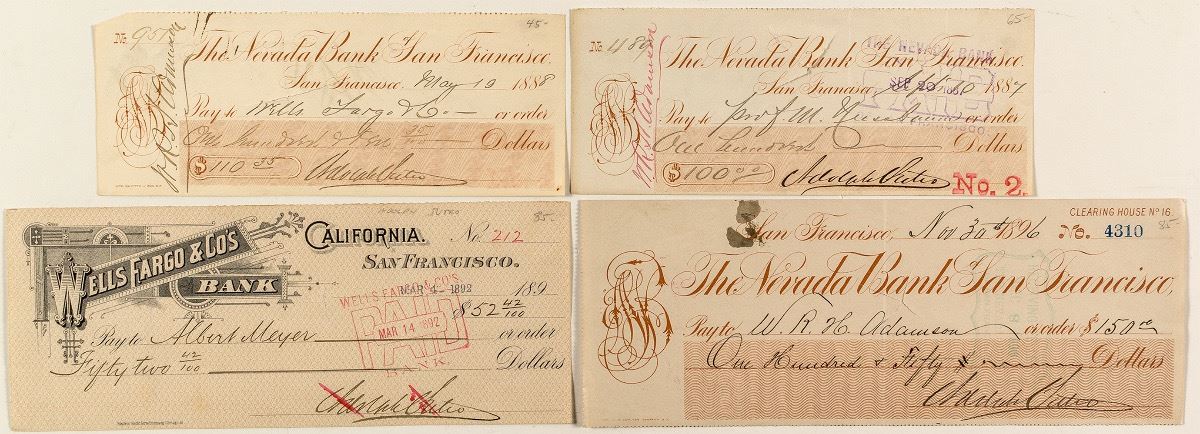 45-
No. 951
The Nevada Bank of San Francisco.
San Francisco, May 10 1888
Pay to Wells Fargo & Co or order
One Hundred & Ten 35/100 Dollars
$110 35
Adolph Sutro
W.R.H. Adamson
65-
No. 489
The Nevada Bank of San Francisco.
THE NEVADA BANK
PAID
SEP 20 1887
San Francisco, 1887
Pay to Prof. M. or order
One Hundred Dollars
$100 00
Adolph Sutro
No. 2.
W.R.H. Adamson
ADOLPH SUTRO
85-
WELLS FARGO & CO'S
BANK
CALIFORNIA.
No. 212
SAN FRANCISCO.
MAR 4 - 1892 189
$52 42/100
WELLS FARGO & CO'S
PAID
MAR 14 1892
BANK
Pay to Albert Meyer or order
Fifty two 42/100 Dollars
Adolph Sutro
CLEARING HOUSE No 16
85-
San Francisco, Nov 30th 1896 No. 4310
The Nevada Bank of San Francisco,
Pay to W. R. H. Adamson or order $150 00
One Hundred & Fifty Dollars
Adolph Sutro